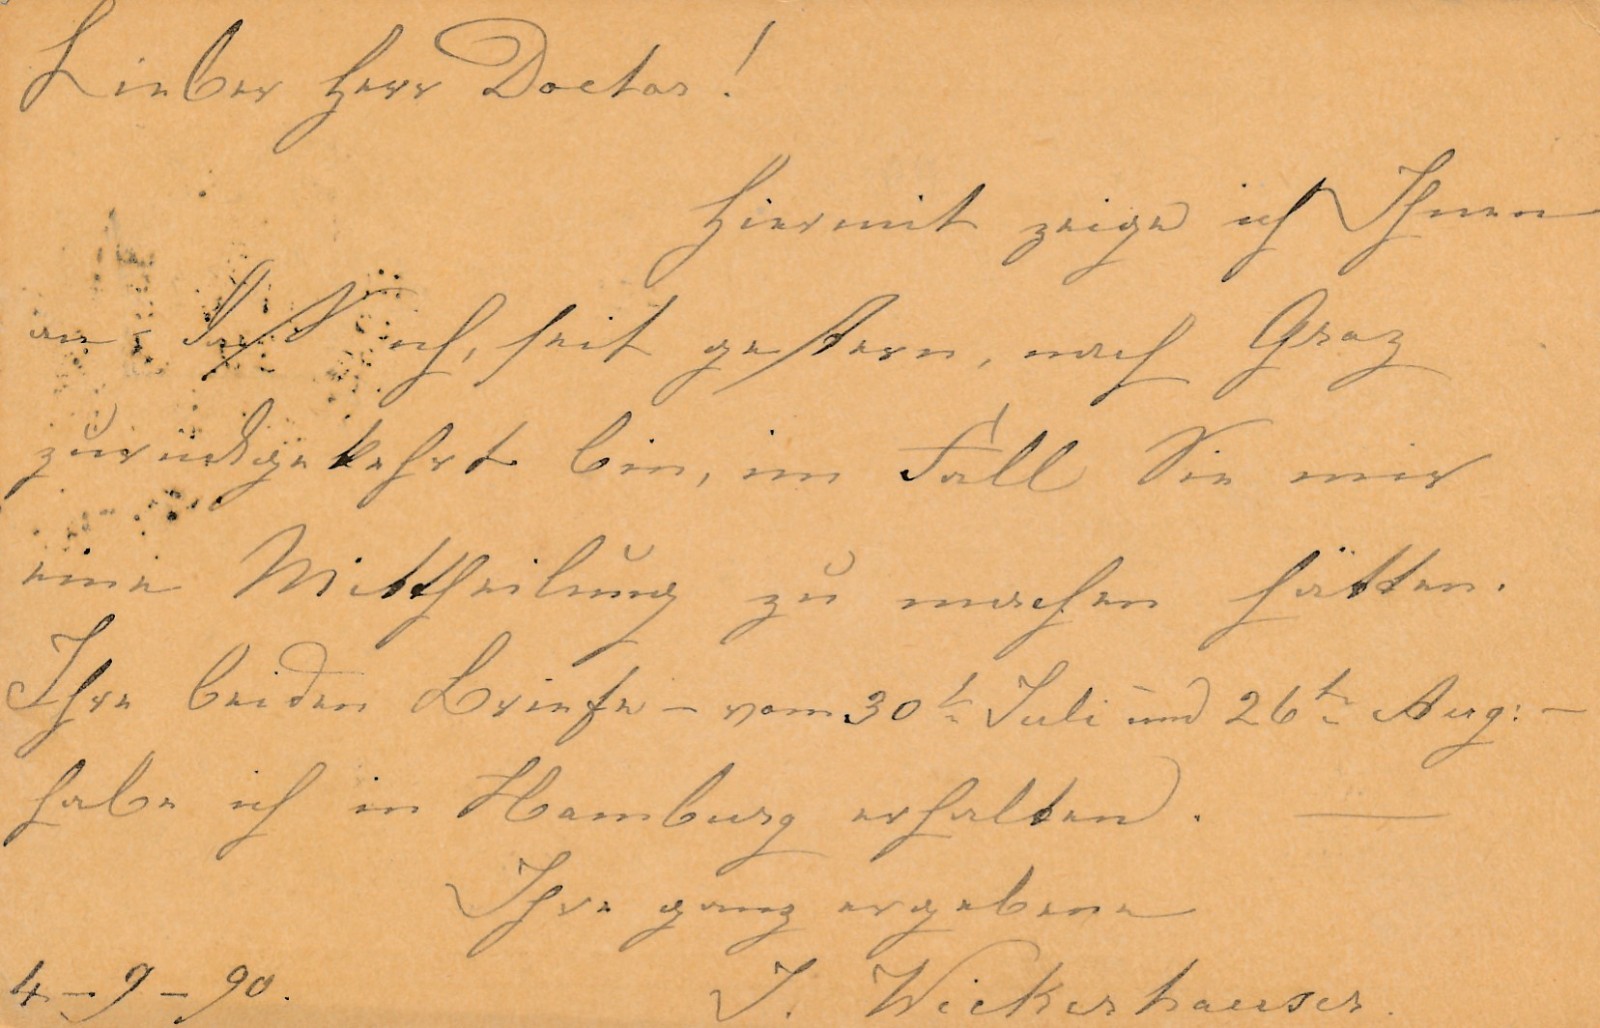 Lieber Herr Doctor!
Hiermit zeige ich Ihnen
an – daß ich, seit gestern, nach Graz
zurückgekehrt bin, im Fall Sie mir
eine Mittheilung zu machen hätten.
Ihre beiden Briefe – vom 30t. Juli und 26tn. Aug: –
habe ich in Hamburg erhalten. —
Ihre ganz ergebene
4 – 9 – 90. J. Wickerhauser.